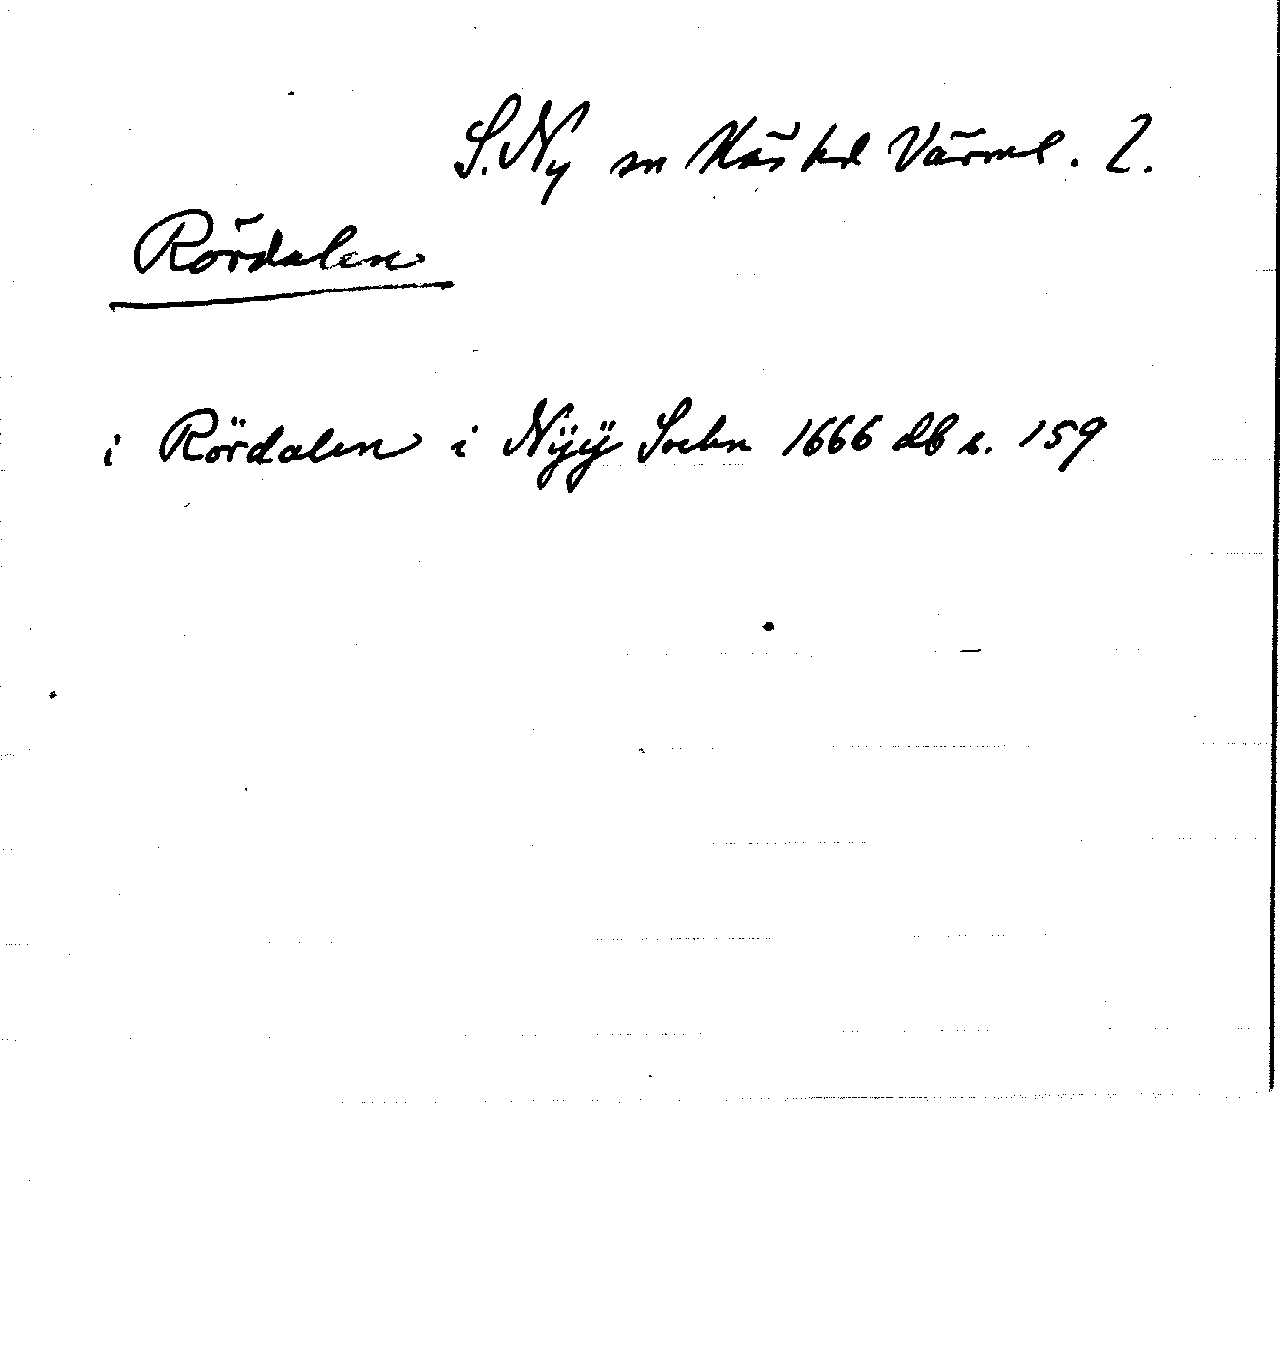 S. Ny sn Näs hd Värml. l.
Rördalen
i Rördalen i Nÿÿ Sochn 1666 db s. 159